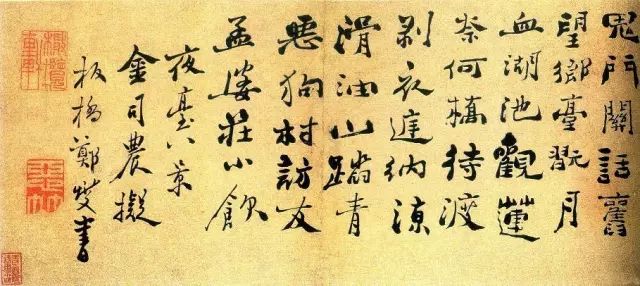 鬼門關話舊
望鄉臺翫月
血湖池觀蓮
奈何橋待渡
剝衣納涼
滑油山踏青
惡狗村訪友
孟婆莊小飲
夜臺八景
金司農擬
板橋鄭燮書